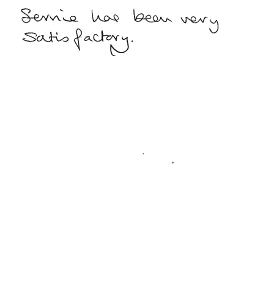 Service has been very
satisfactory.